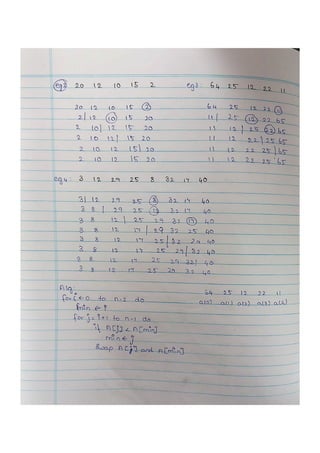 eg2: 20 12 10 15 2
20 12 10 15 2
2| 12 10 15 20
2 10| 12 15 20
2 10 12| 15 20
2 10 12 15| 20
2 10 12 15 20
eg3: 64 25 12 22 11
64 25 12 22 11
11| 25 12 22 65
11 12 | 25 22 65
11 12 22| 25 65
11 12 22 25| 65
11 12 22 25 65
eg4: 3 12 29 25 8 32 17 40
3| 12 29 25 8 32 17 40
3 8 | 29 25 12 32 17 40
3 8 12 | 25 29 32 17 40
3 8 12 17 | 29 32 25 40
3 8 12 17 25 | 32 29 40
3 8 12 17 25 29| 32 40
3 8 12 17 25 29 32| 40
3 8 12 17 25 29 32 40
Alg:
for i ← 0 to n-2 do
min ← i
for j = i+1 to n-1 do
if A[j] < A[min]
min ← j
Swap A[j] and A[min]
64 25 12 22 11
a(0) a(1) a(2) a(3) a(4)